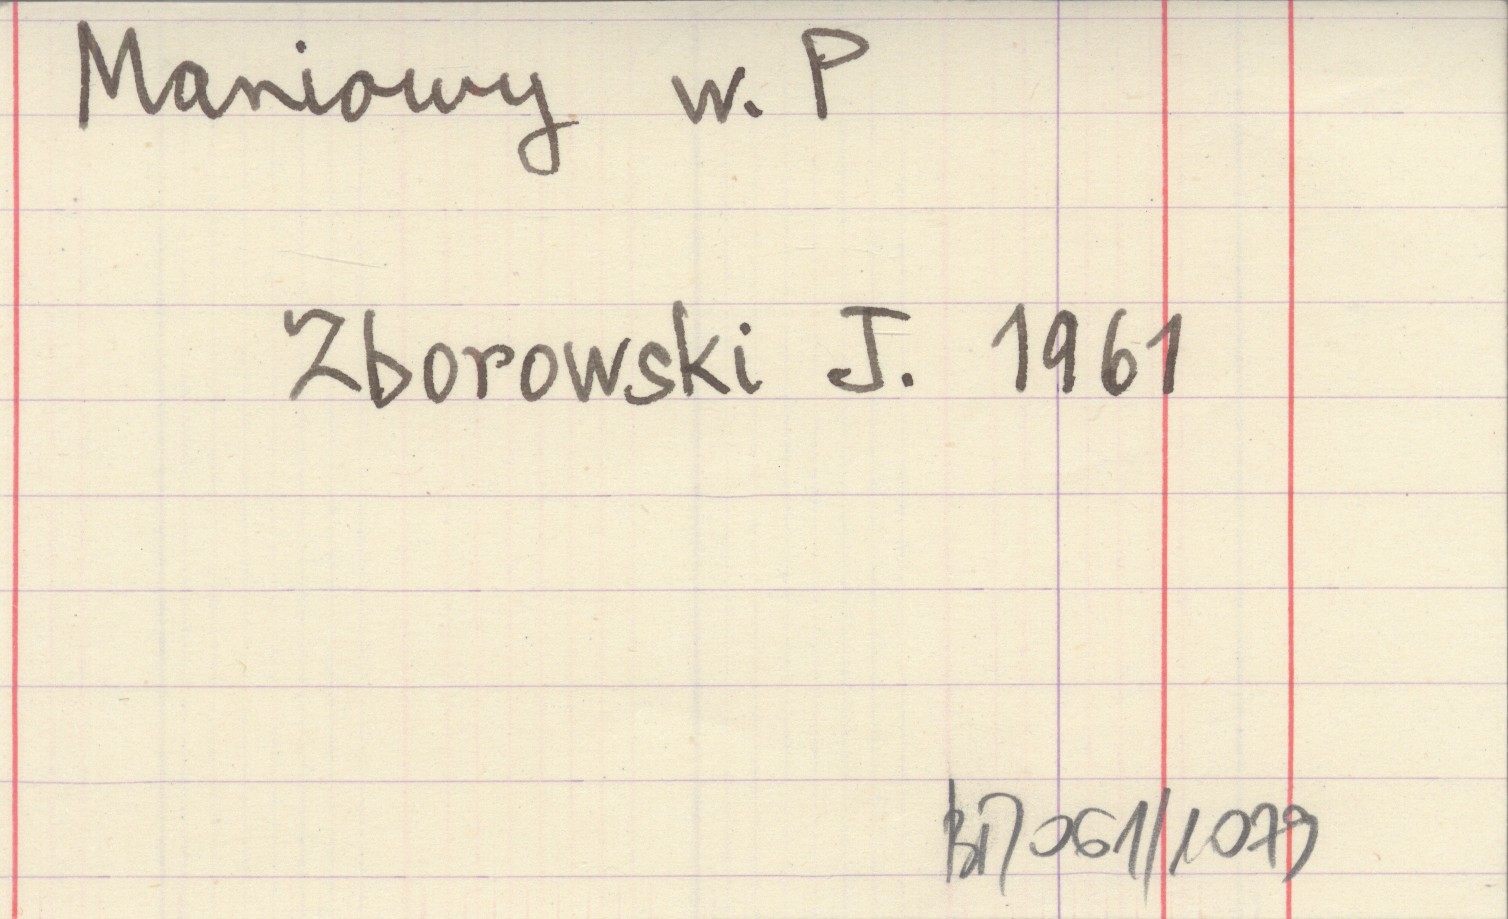 Maniowy w. P
Zborowski J. 1961
061/1079